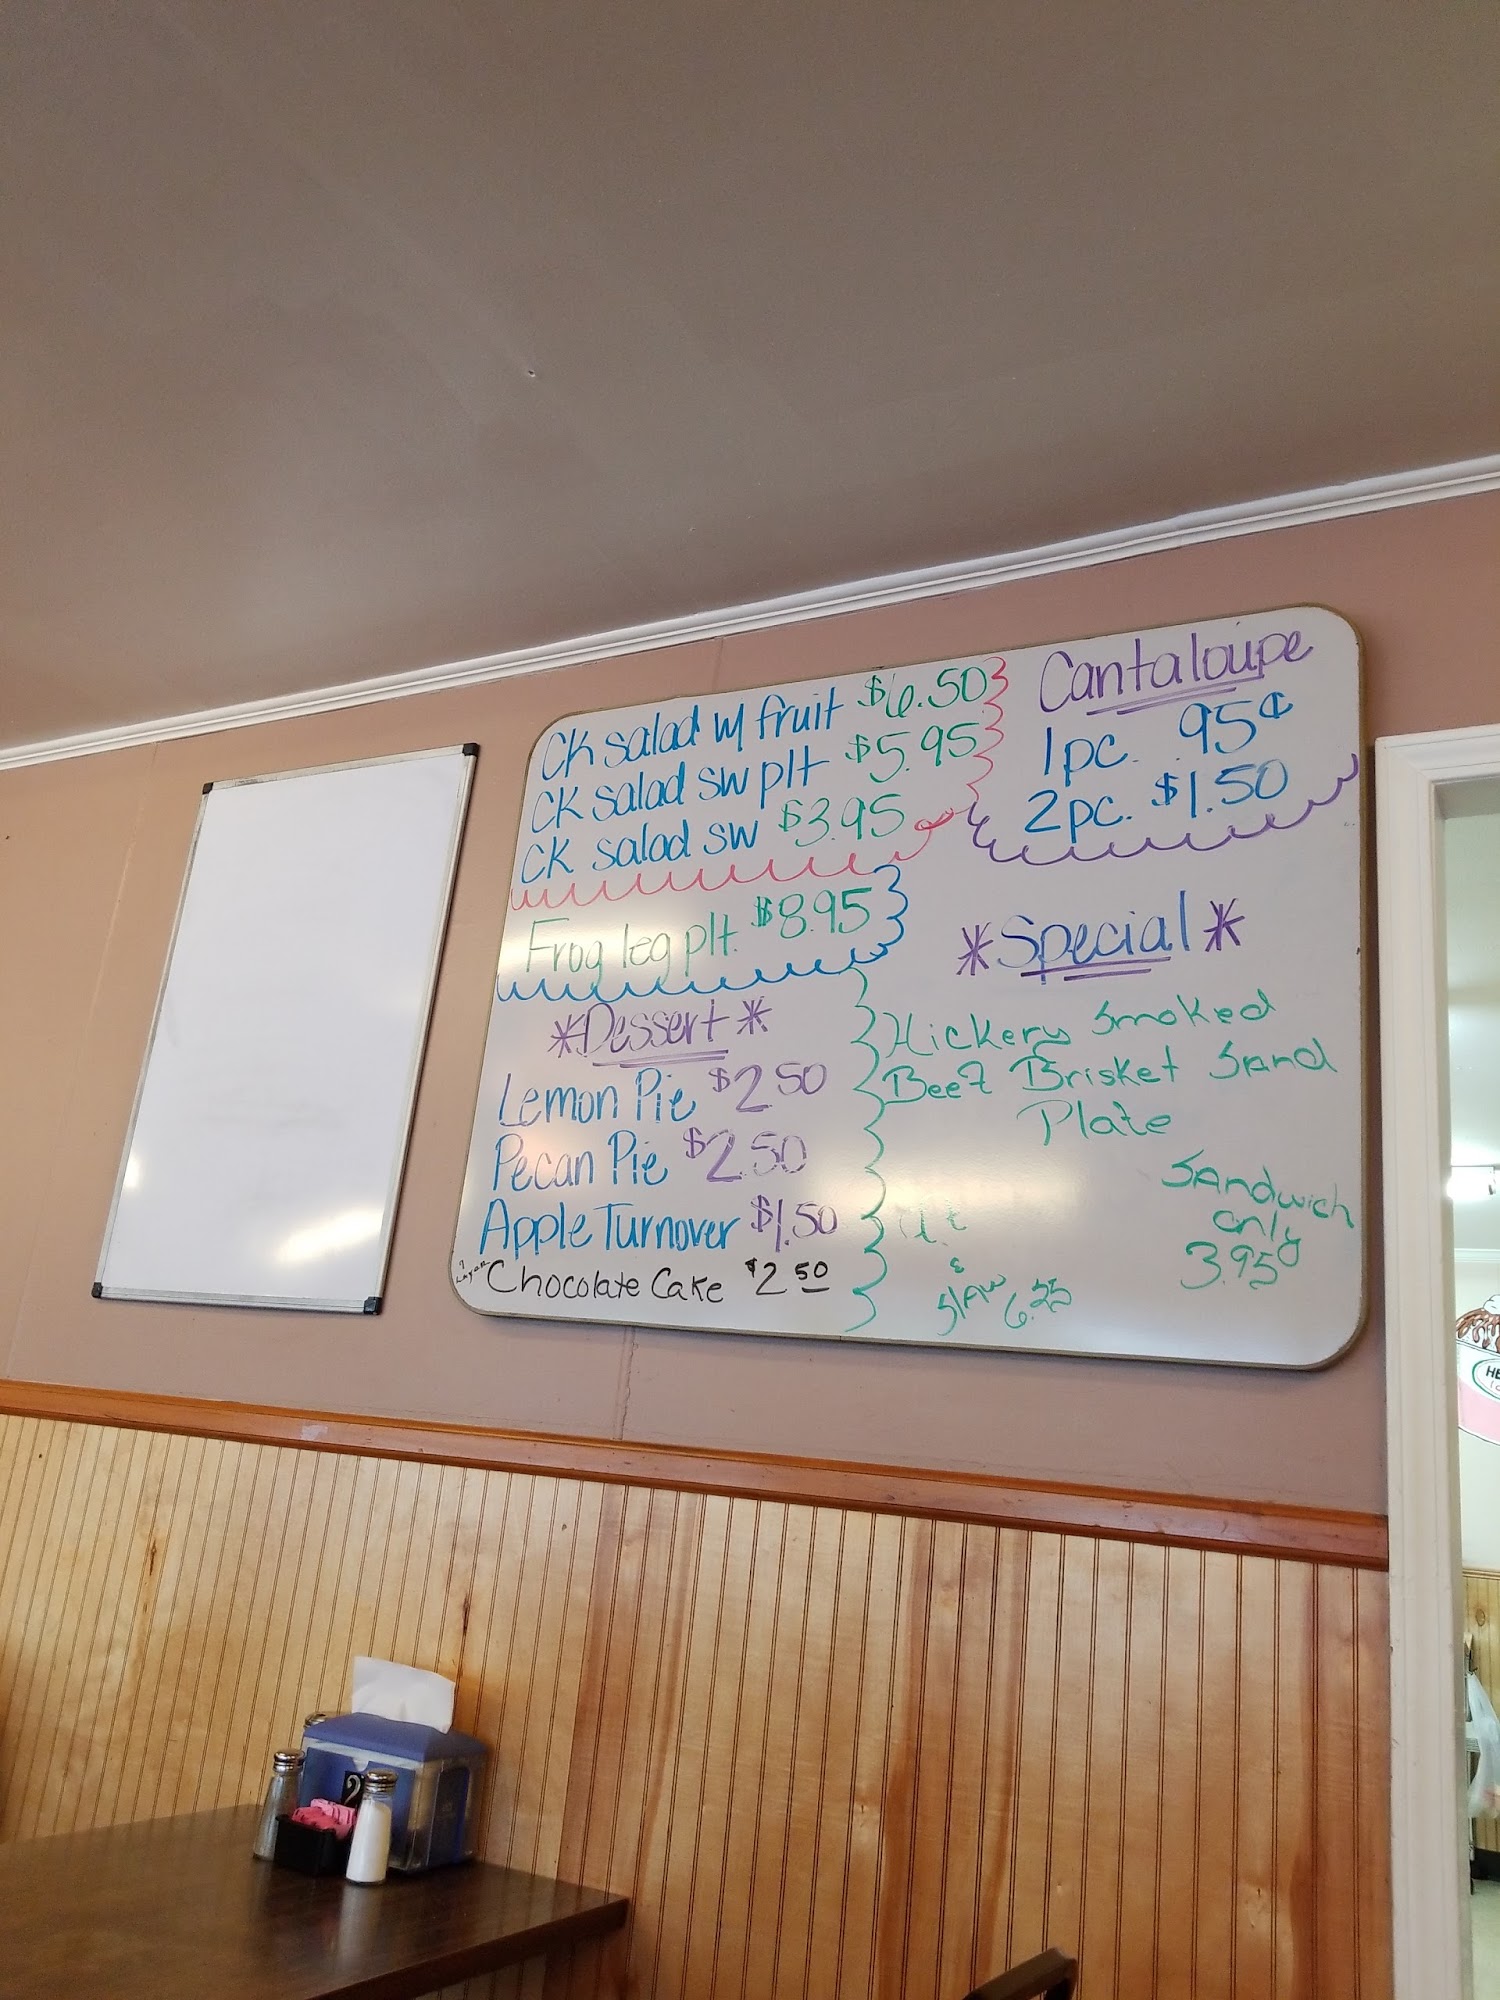 CK salad w/ fruit $6.50
CK salad sw plt $5.95
CK salad sw $3.95
Frog leg plt. $8.95
*Dessert*
Lemon Pie $2.50
Pecan Pie $2.50
Apple Turnover $1.50
Layer Chocolate Cake $2.50
Cantaloupe
1pc. 95¢
2pc. $1.50
*Special*
Hickery Smoked
Beef Brisket Sand
Plate
Sandwich
only
3.95
&
Slaw 6.25